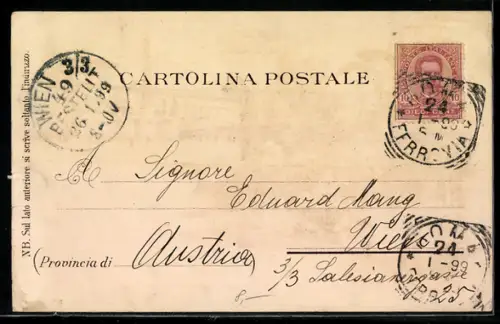 CARTOLINA POSTALE
WIEN
3/3
26 1 99
ROMA
24
1-99
FERROVIA
A Signore
Eduard Mang
Wien
Austria
(Provincia di
3/3 Salesianergasse
25.
ROMA
24
1-99
8,-
NB. Sul lato anteriore si scrive soltanto l'indirizzo.